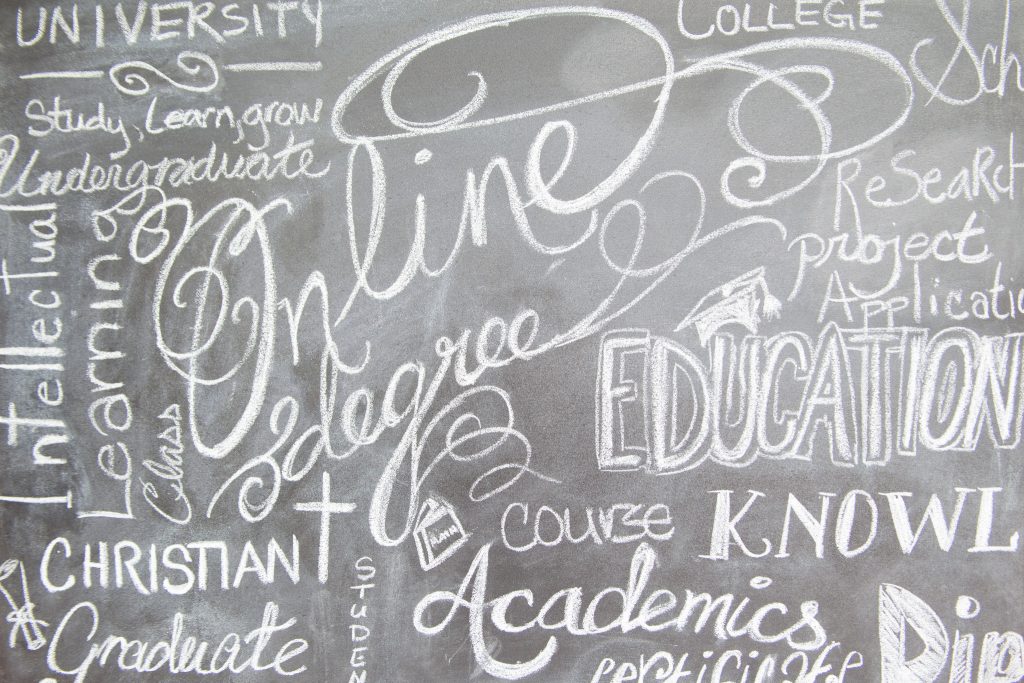 UNIVERSITY
COLLEGE
Sch
Study, Learn, grow
Undergraduate
Online
degree
Intellectual
Learning
Class
ReSeaRch
project
Applicatio
EDUCATION
COURSE
KNOWL
CHRISTIAN
Graduate
STUDEN
Academics
certificate
Dip